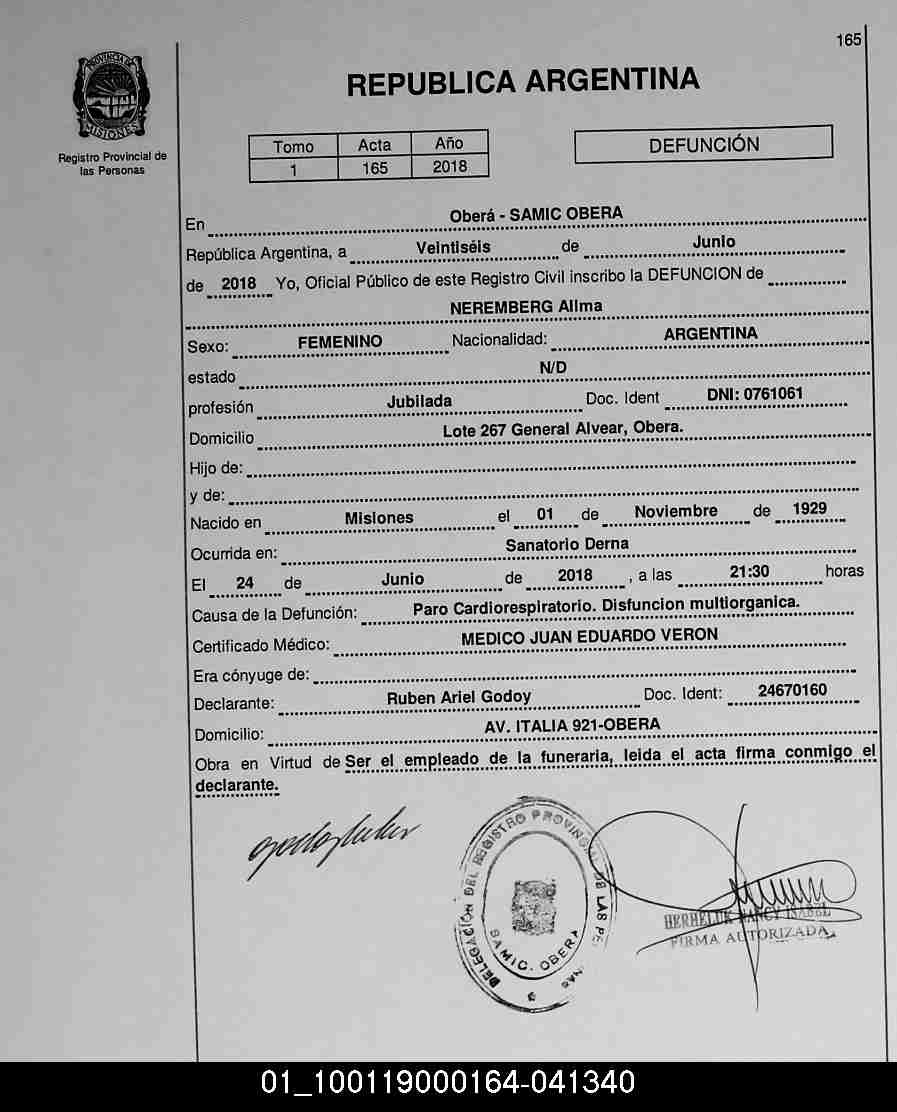 165
REPUBLICA ARGENTINA
PROVINCIA DE
MISIONES
Registro Provincial de
las Personas
Tomo Acta Año
1 165 2018
DEFUNCIÓN
En Oberá - SAMIC OBERA
República Argentina, a Veintiséis de Junio
de 2018 Yo, Oficial Público de este Registro Civil inscribo la DEFUNCION de
NEREMBERG Allma
Sexo: FEMENINO Nacionalidad: ARGENTINA
estado N/D
profesión Jubilada Doc. Ident DNI: 0761061
Domicilio Lote 267 General Alvear, Obera.
Hijo de:
y de:
Nacido en Misiones el 01 de Noviembre de 1929
Ocurrida en: Sanatorio Derna
El 24 de Junio de 2018 , a las 21:30 horas
Causa de la Defunción: Paro Cardiorespiratorio. Disfuncion multiorganica.
Certificado Médico: MEDICO JUAN EDUARDO VERON
Era cónyuge de:
Declarante: Ruben Ariel Godoy Doc. Ident: 24670160
Domicilio: AV. ITALIA 921-OBERA
Obra en Virtud de Ser el empleado de la funeraria, leida el acta firma conmigo el
declarante.
DELEGACIÓN DEL REGISTRO PROVINCIAL DE LAS
SAMIC. OBERA
HERHELUK NANCY ISABEL
FIRMA AUTORIZADA
01_100119000164-041340